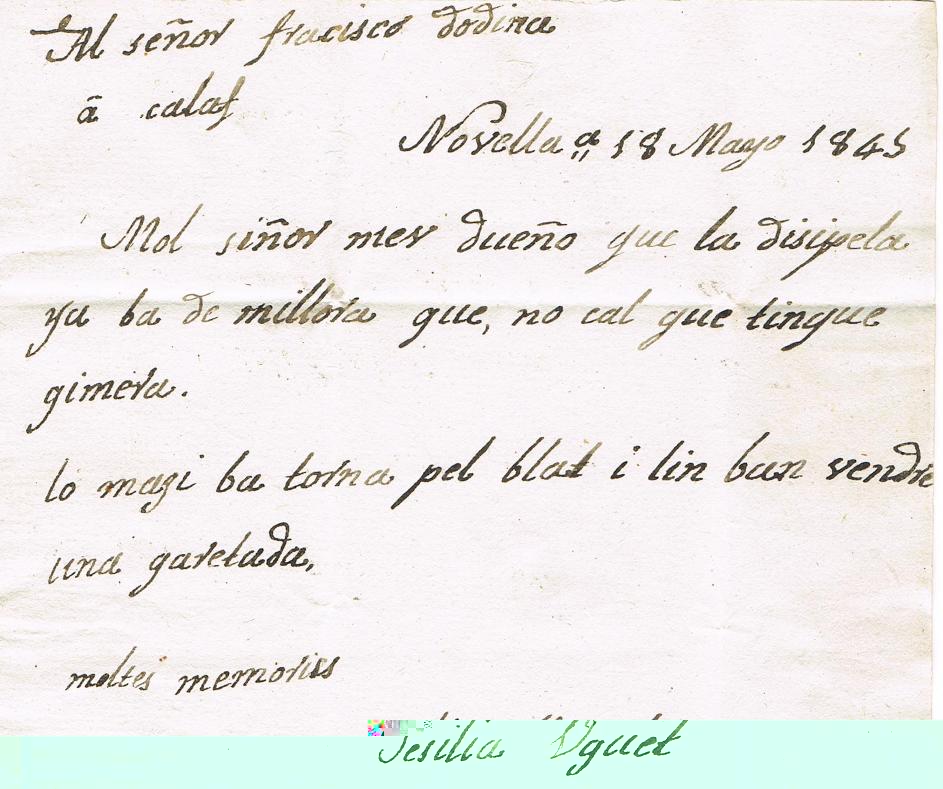 Al señor fracisco dodina
ā calaf
Novella a 18 Mayo 1845
Mol siñor mev dueño que la disipela
ya ba de millora que, no cal que tingue
gimera.
lo mazi ba torna pel blat i lin ban vendre
una garetada,
moltes memories
Sesilia Uguet